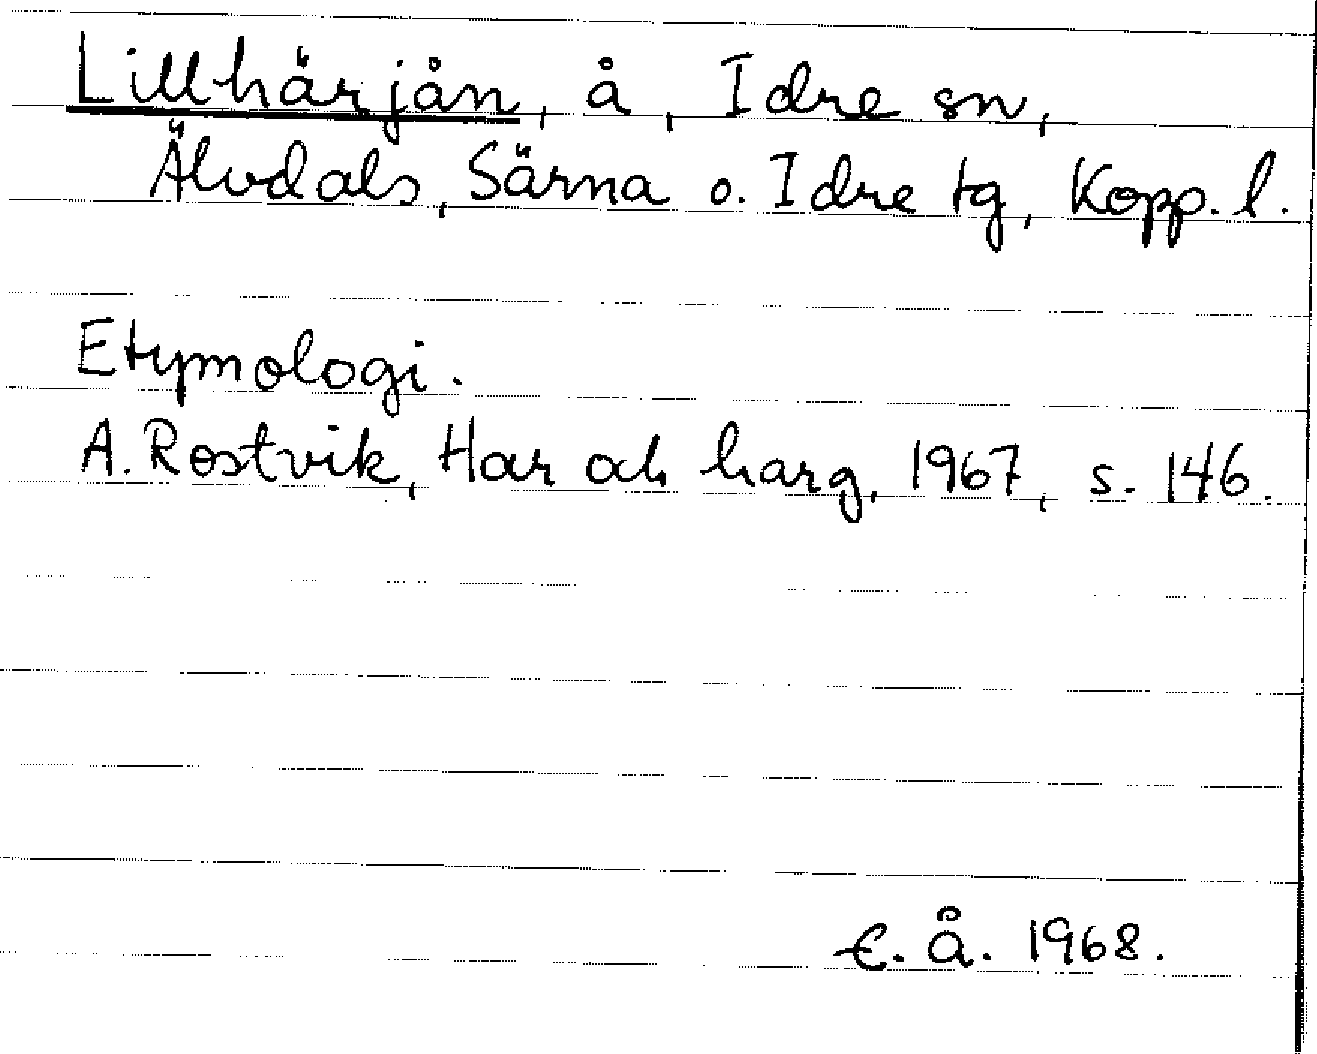 Lillhärjån, å, Idre sn,
Älvdals, Särna o. Idre tg, Kopp. l.
Etymologi.
A. Rostvik, Har och harg, 1967, s. 146.
E. Å. 1968.